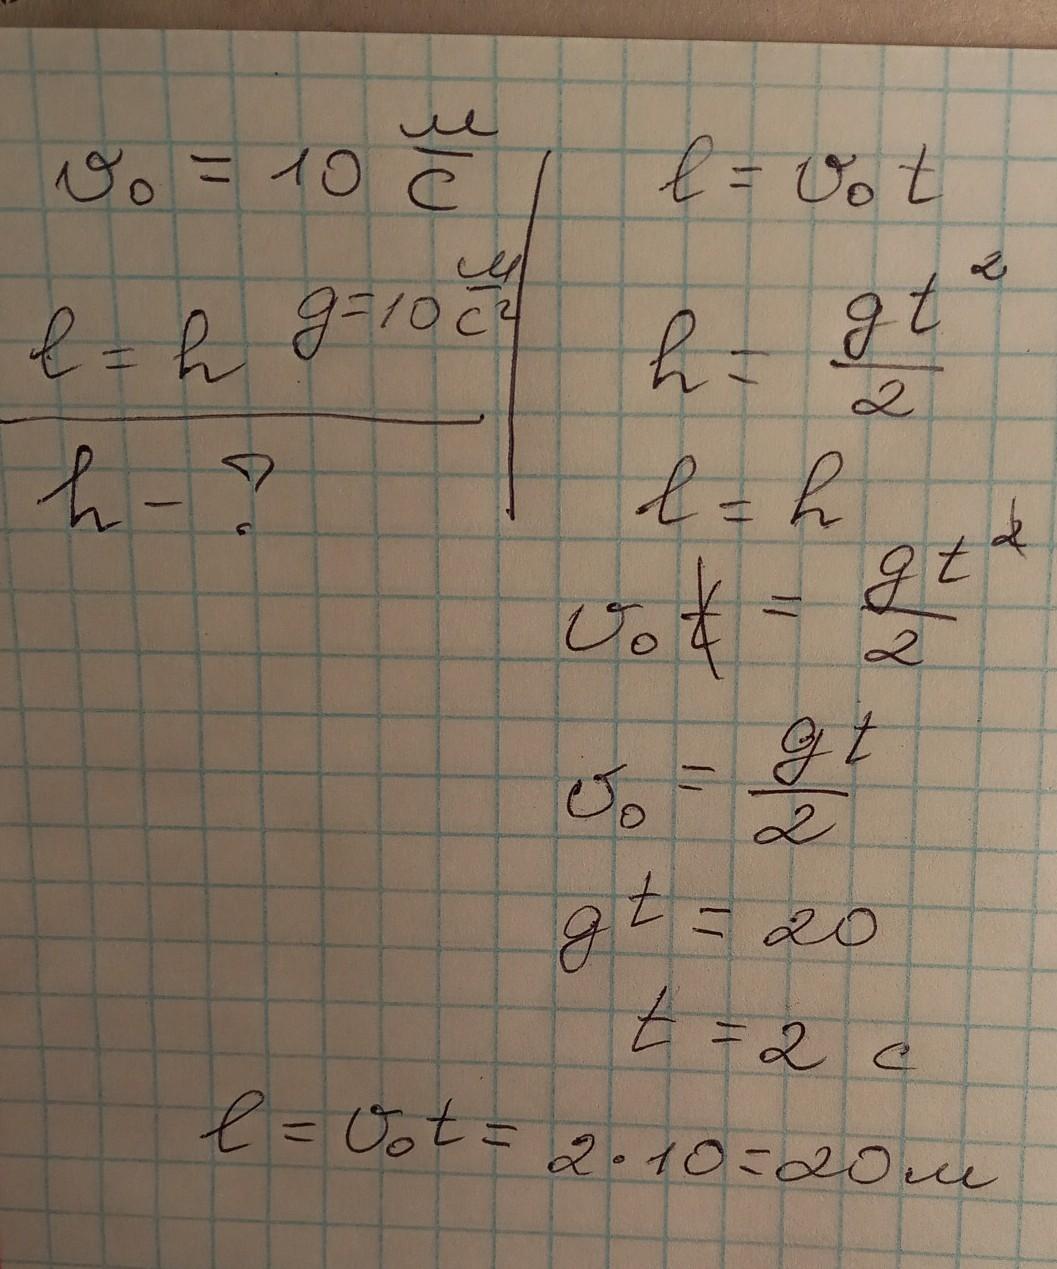 υ₀ = 10 м/с
l = h g = 10 м/с²
h - ?
l = υ₀ t
h = gt²/2
l = h
υ₀ t = gt²/2
υ₀ = gt/2
gt = 20
t = 2 с
l = υ₀t = 2·10 = 20 м